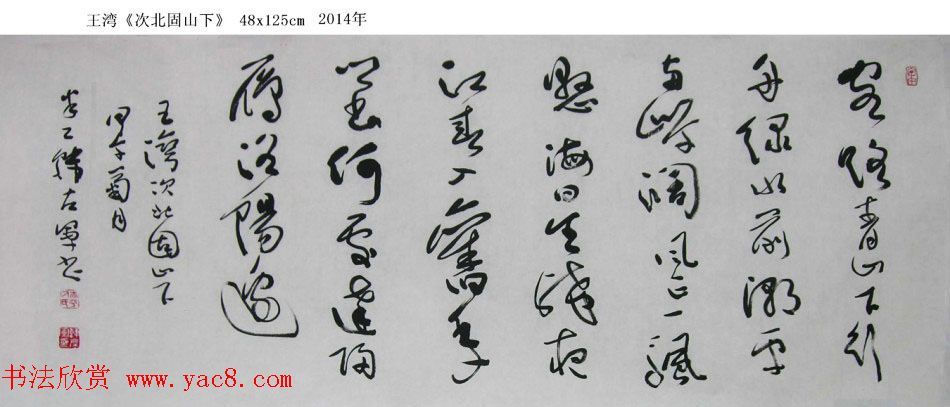 王湾《次北固山下》 48x125cm 2014年
客路青山下行
舟绿水前潮平
两岸阔风正一帆
懸海日生残夜
江春入舊年
鄉書何處達歸
雁洛陽邊
王灣次北固山下
甲午菊月
左軍书
书法欣赏 www.yac8.com